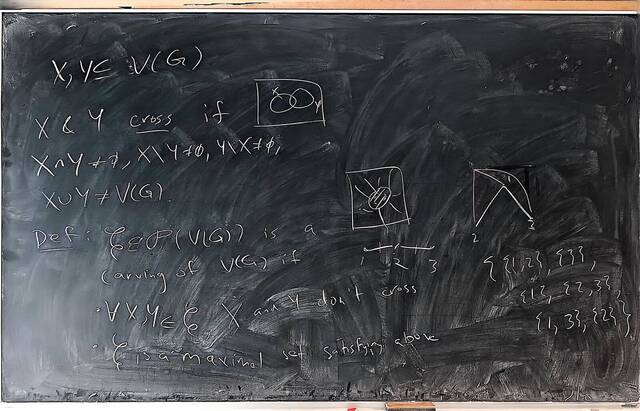 X, Y ⊆ V(G)
X & Y cross if
X∩Y ≠ ∅, X\Y ≠ ∅, Y\X ≠ ∅,
X∪Y ≠ V(G).
Def: ⊆ P(V(G)) is a
carving of V(G) if
• ∀ X, Y ∈ X and Y don't cross
• is a maximal set satisfying above
X Y
1 2 3
1
2 3
{ {1,2}, {3},
{1}, {2,3}
{1,3}, {2} }